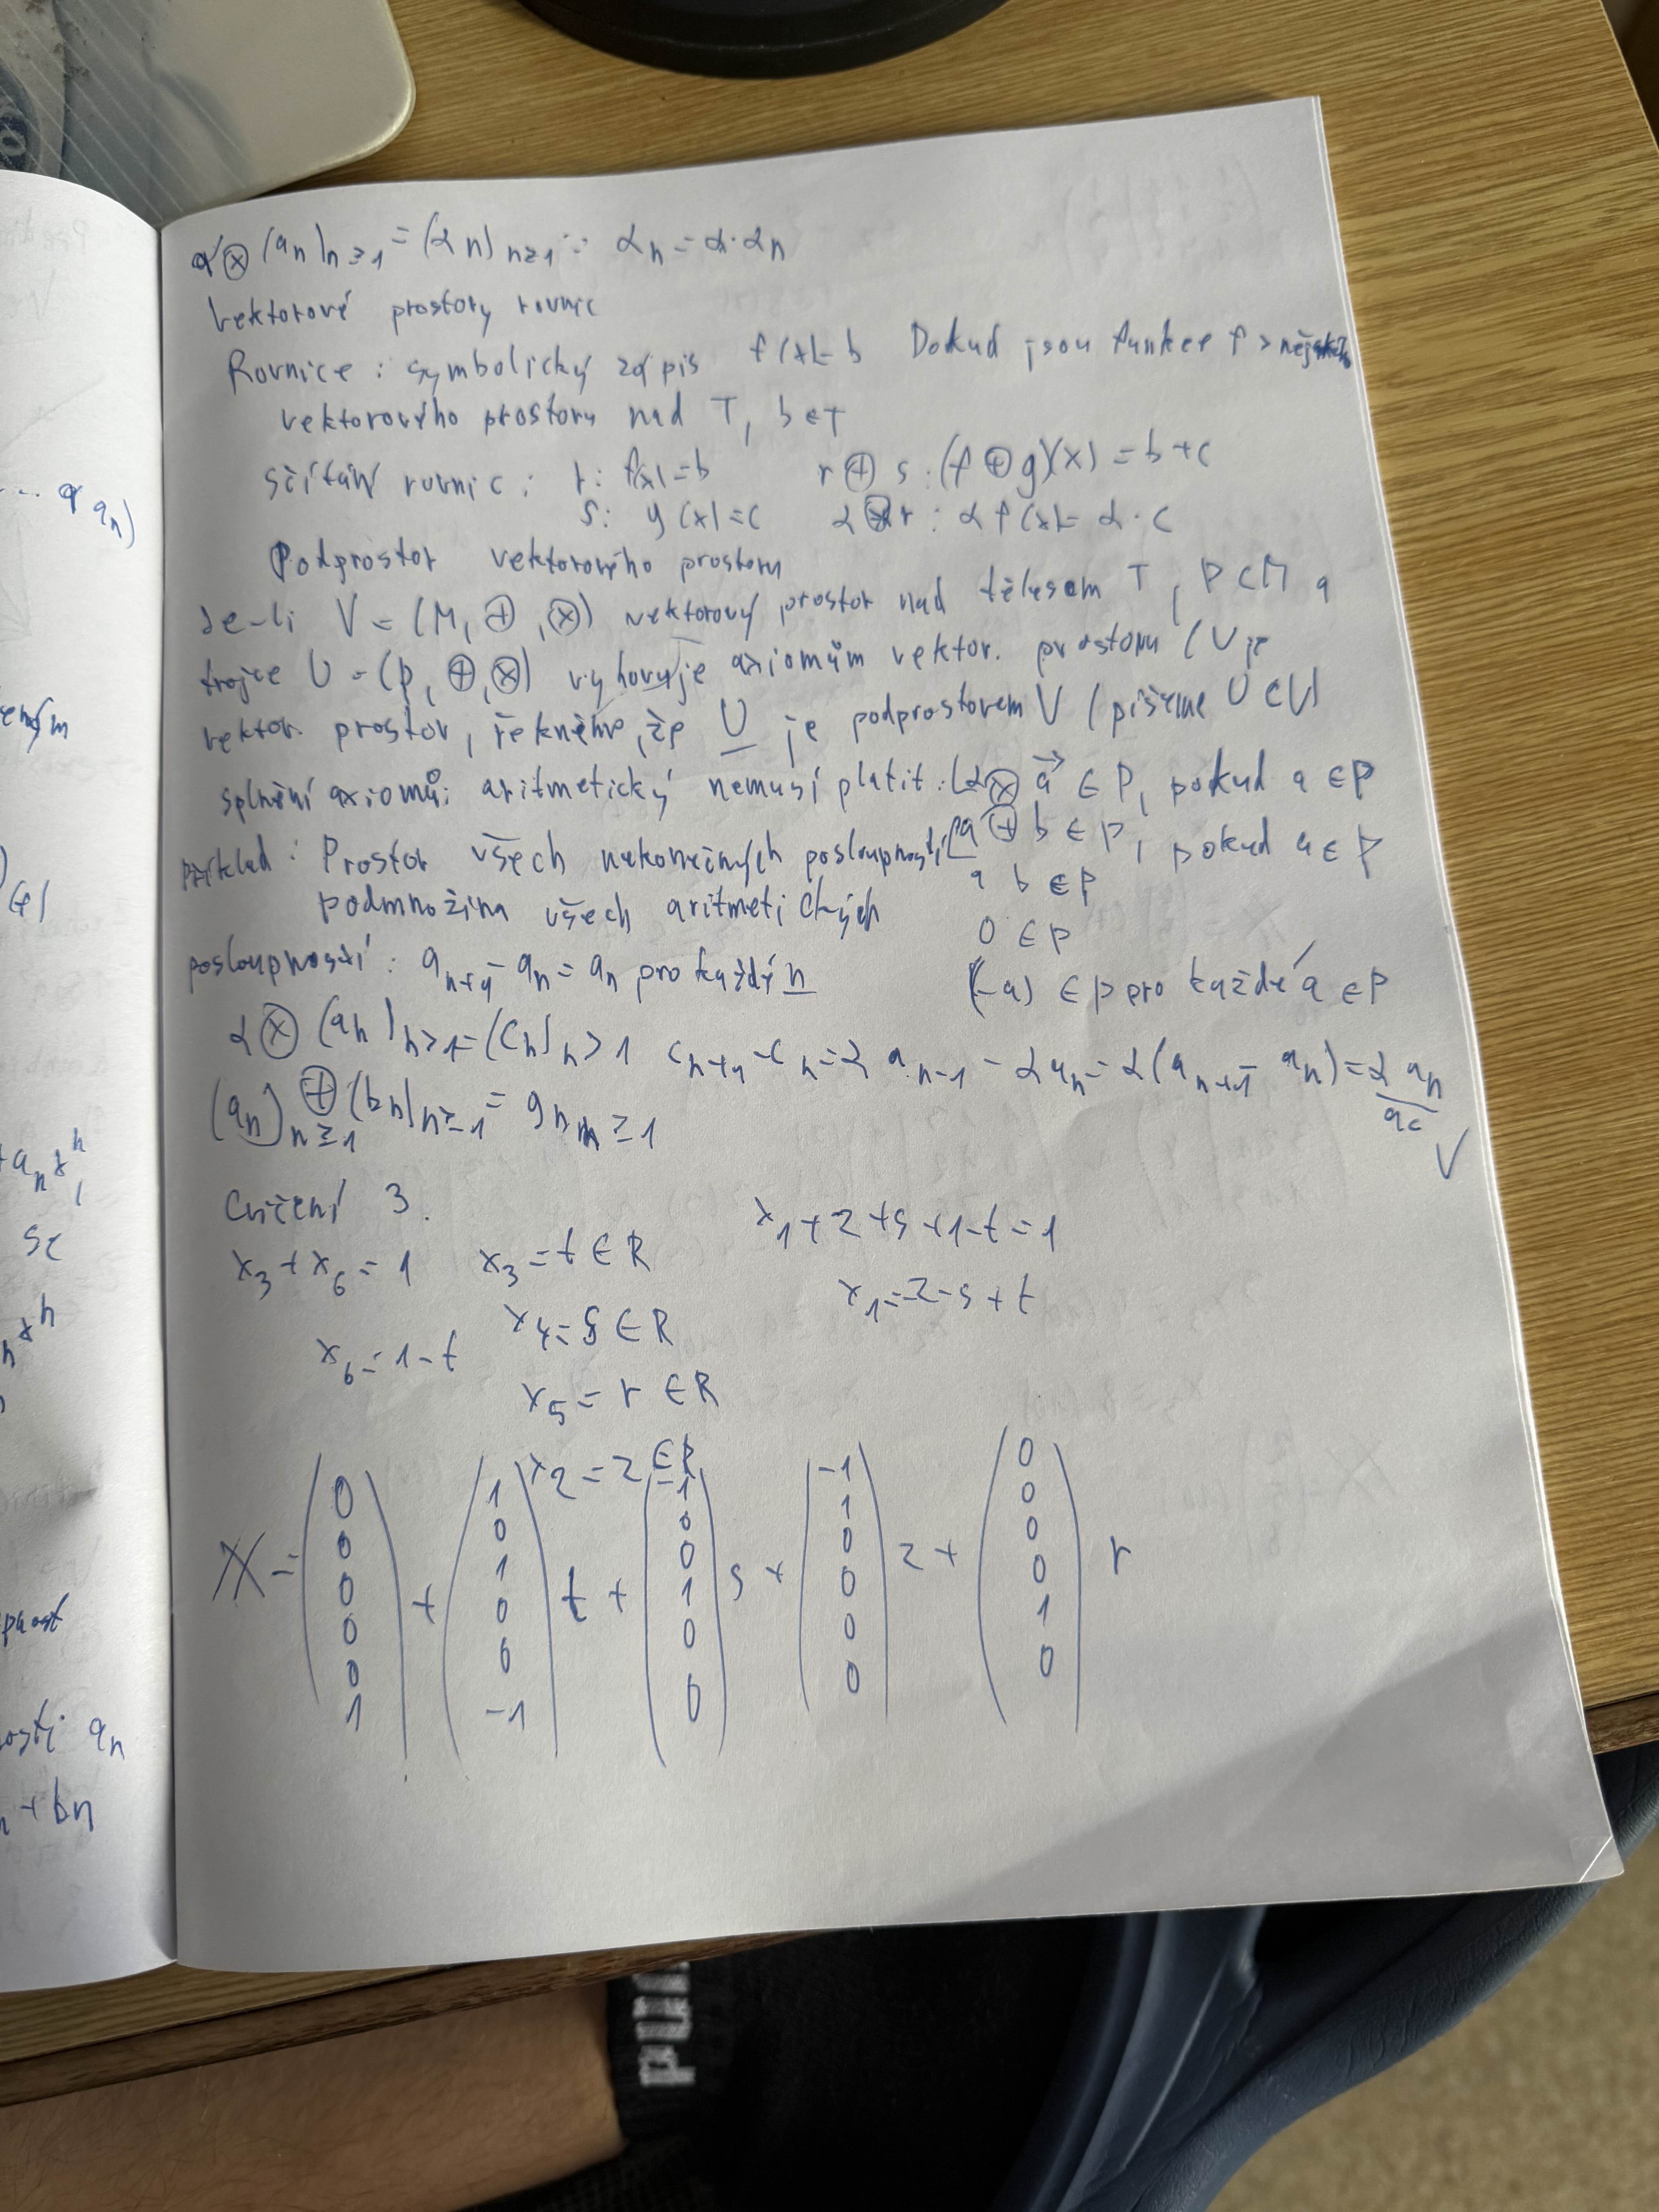 α⊗(aₙ)ₙ≥₁ = (αn)ₙ≥₁ : αₙ = α·αₙ
Vektorové prostory rovnic
Rovnice: symbolický zápis f(x)=b Dokud jsou funkce f z
vektorového prostoru nad T, b∈T
sčítání rovnic: r: f(x)=b r⊕s: (f⊕g)(x)=b+c
s: g(x)=c α⊗r: αf(x)=α·c
Podprostor vektorového prostoru
Je-li V=(M,⊕,⊗) vektorový prostor nad tělesem T, P⊂M a
trojce U=(P,⊕,⊗) vyhovuje axiomům vektor. prostoru (U je
vektor. prostor, řekněme, že U je podprostorem V (píšeme U⊂V)
splnění axiomů: aritmetický nemusí platit: (α⊗a⃗ ∈P, pokud a∈P
příklad: Prostor všech nekonečných posloupností a⊕b∈P, pokud a∈P
a b∈P
podmnožina všech aritmetických
0∈P
posloupností: aₙ₊₁-aₙ=aₙ pro každý n (-a)∈P pro každé a∈P
α⊗(aₙ)ₙ>₁=(cₙ)ₙ>1 cₙ₊₁-cₙ=αaₙ₋₁-αaₙ=α(aₙ₊₁-aₙ)=αaₙ
ac
V
(aₙ)ₙ≥₁⊕(bₙ)ₙ≥₁=gₙ ₙ≥1
Cvičení 3.
x₃+x₆=1 x₃=t∈R x₁+z+s+1-t=1
x₄=s∈R x₁=-z-s+t
x₆=1-t
x₅=r∈R
x₂=z∈R
X=(0 0 0 0 0 1)+(1 0 1 0 0 -1)t+(-1 0 0 1 0 0)s+(-1 1 0 0 0 0)z+(0 0 0 0 1 0)r
aₙ)
se
aₙ
+bn
PUM